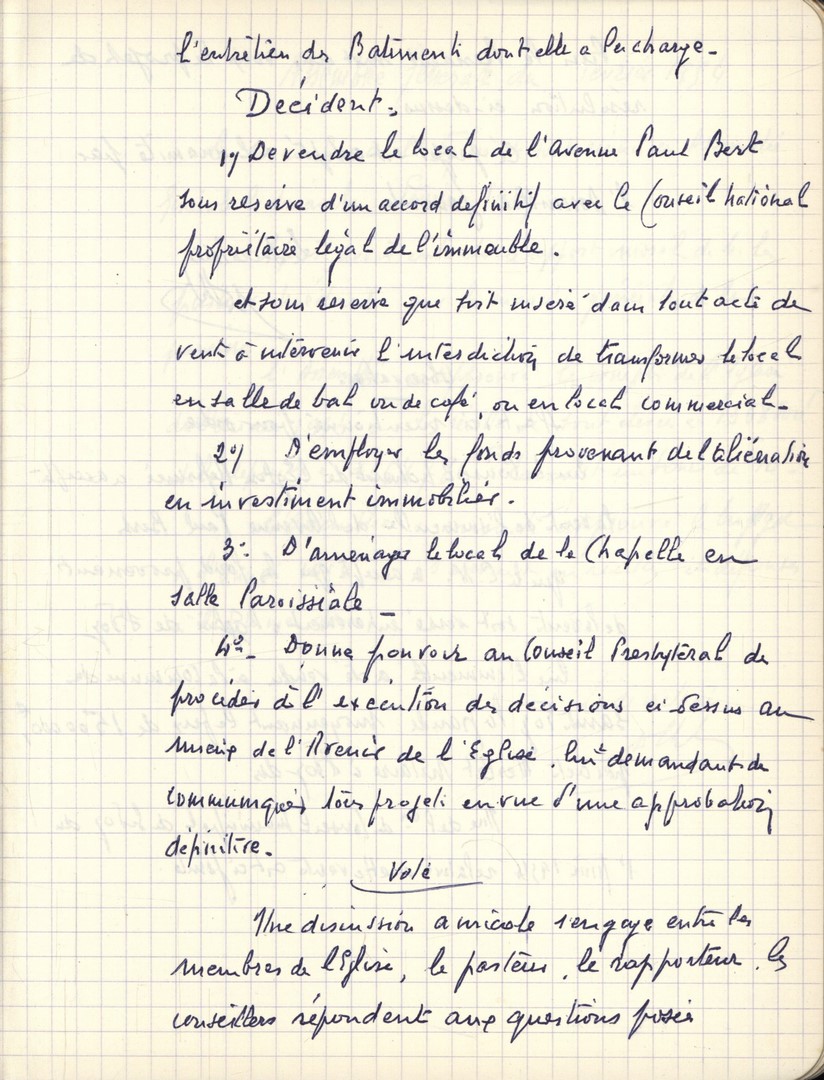 l'entretien des Batiments dont elle a la charge -
Décident :
1°/ De vendre le local de l'avenue Paul Bert
sous reserve d'un accord definitif avec le Conseil National
propriétaire légal de l'immeuble.
et sous reserve que soit inséré dans tout acte de
vente à intervenir l'interdiction de transformer le local
en salle de bal ou de café, ou en local commercial -
2°/ D'employer les fonds provenant de l'aliénation
en investiment immobilier.
3° D'aménager le local de la Chapelle en
salle Paroissiale -
4° - Donne pouvoir au Conseil Presbytéral de
procéder à l'exécution des décisions ci-dessus au
mieux de l'Avenir de l'Eglise. lui demandant de
communiquer tous projets en vue d'une approbation
définitive.
Voté
Une discussion amicale s'engage entre les
membres de l'Eglise, le pasteur, le rapporteur, les
conseillers répondent aux questions posées